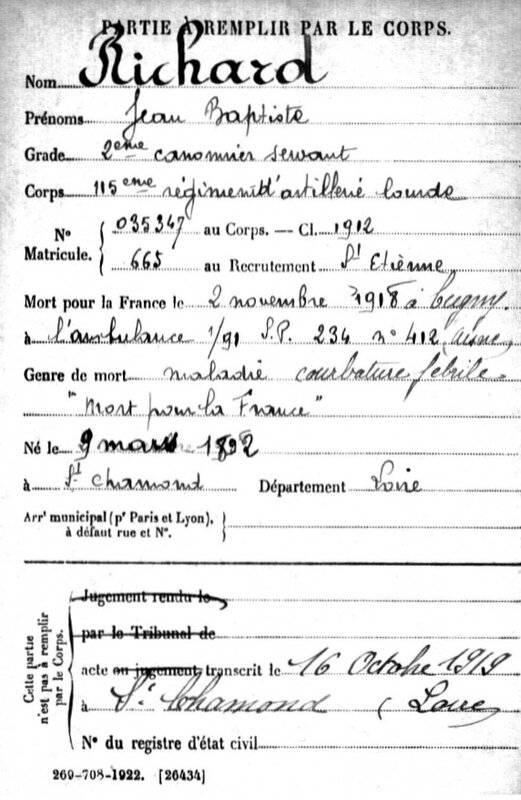 PARTIE À REMPLIR PAR LE CORPS.
Nom Richard
Prénoms Jean Baptiste
Grade 2eme canonnier servant
Corps 115eme régiment d'artillerie lourde
N° Matricule. 035347 au Corps. — Cl. 1912
665 au Recrutement St Etienne
Mort pour la France le 2 novembre 1918 à Cugny
à l'ambulance 1/91 S.P. 234 n° 412 Aisne
Genre de mort maladie courbature fébrile
"Mort pour la France"
Né le 9 mars 1892
à St Chamond Département Loire
Arrt municipal (pr Paris et Lyon),
à défaut rue et N°.
Cette partie n'est pas à remplir par le Corps.
Jugement rendu le
par le Tribunal de
acte ou jugement transcrit le 16 Octobre 1919
à St Chamond (Loire)
N° du registre d'état civil
269-708-1922. [26434]